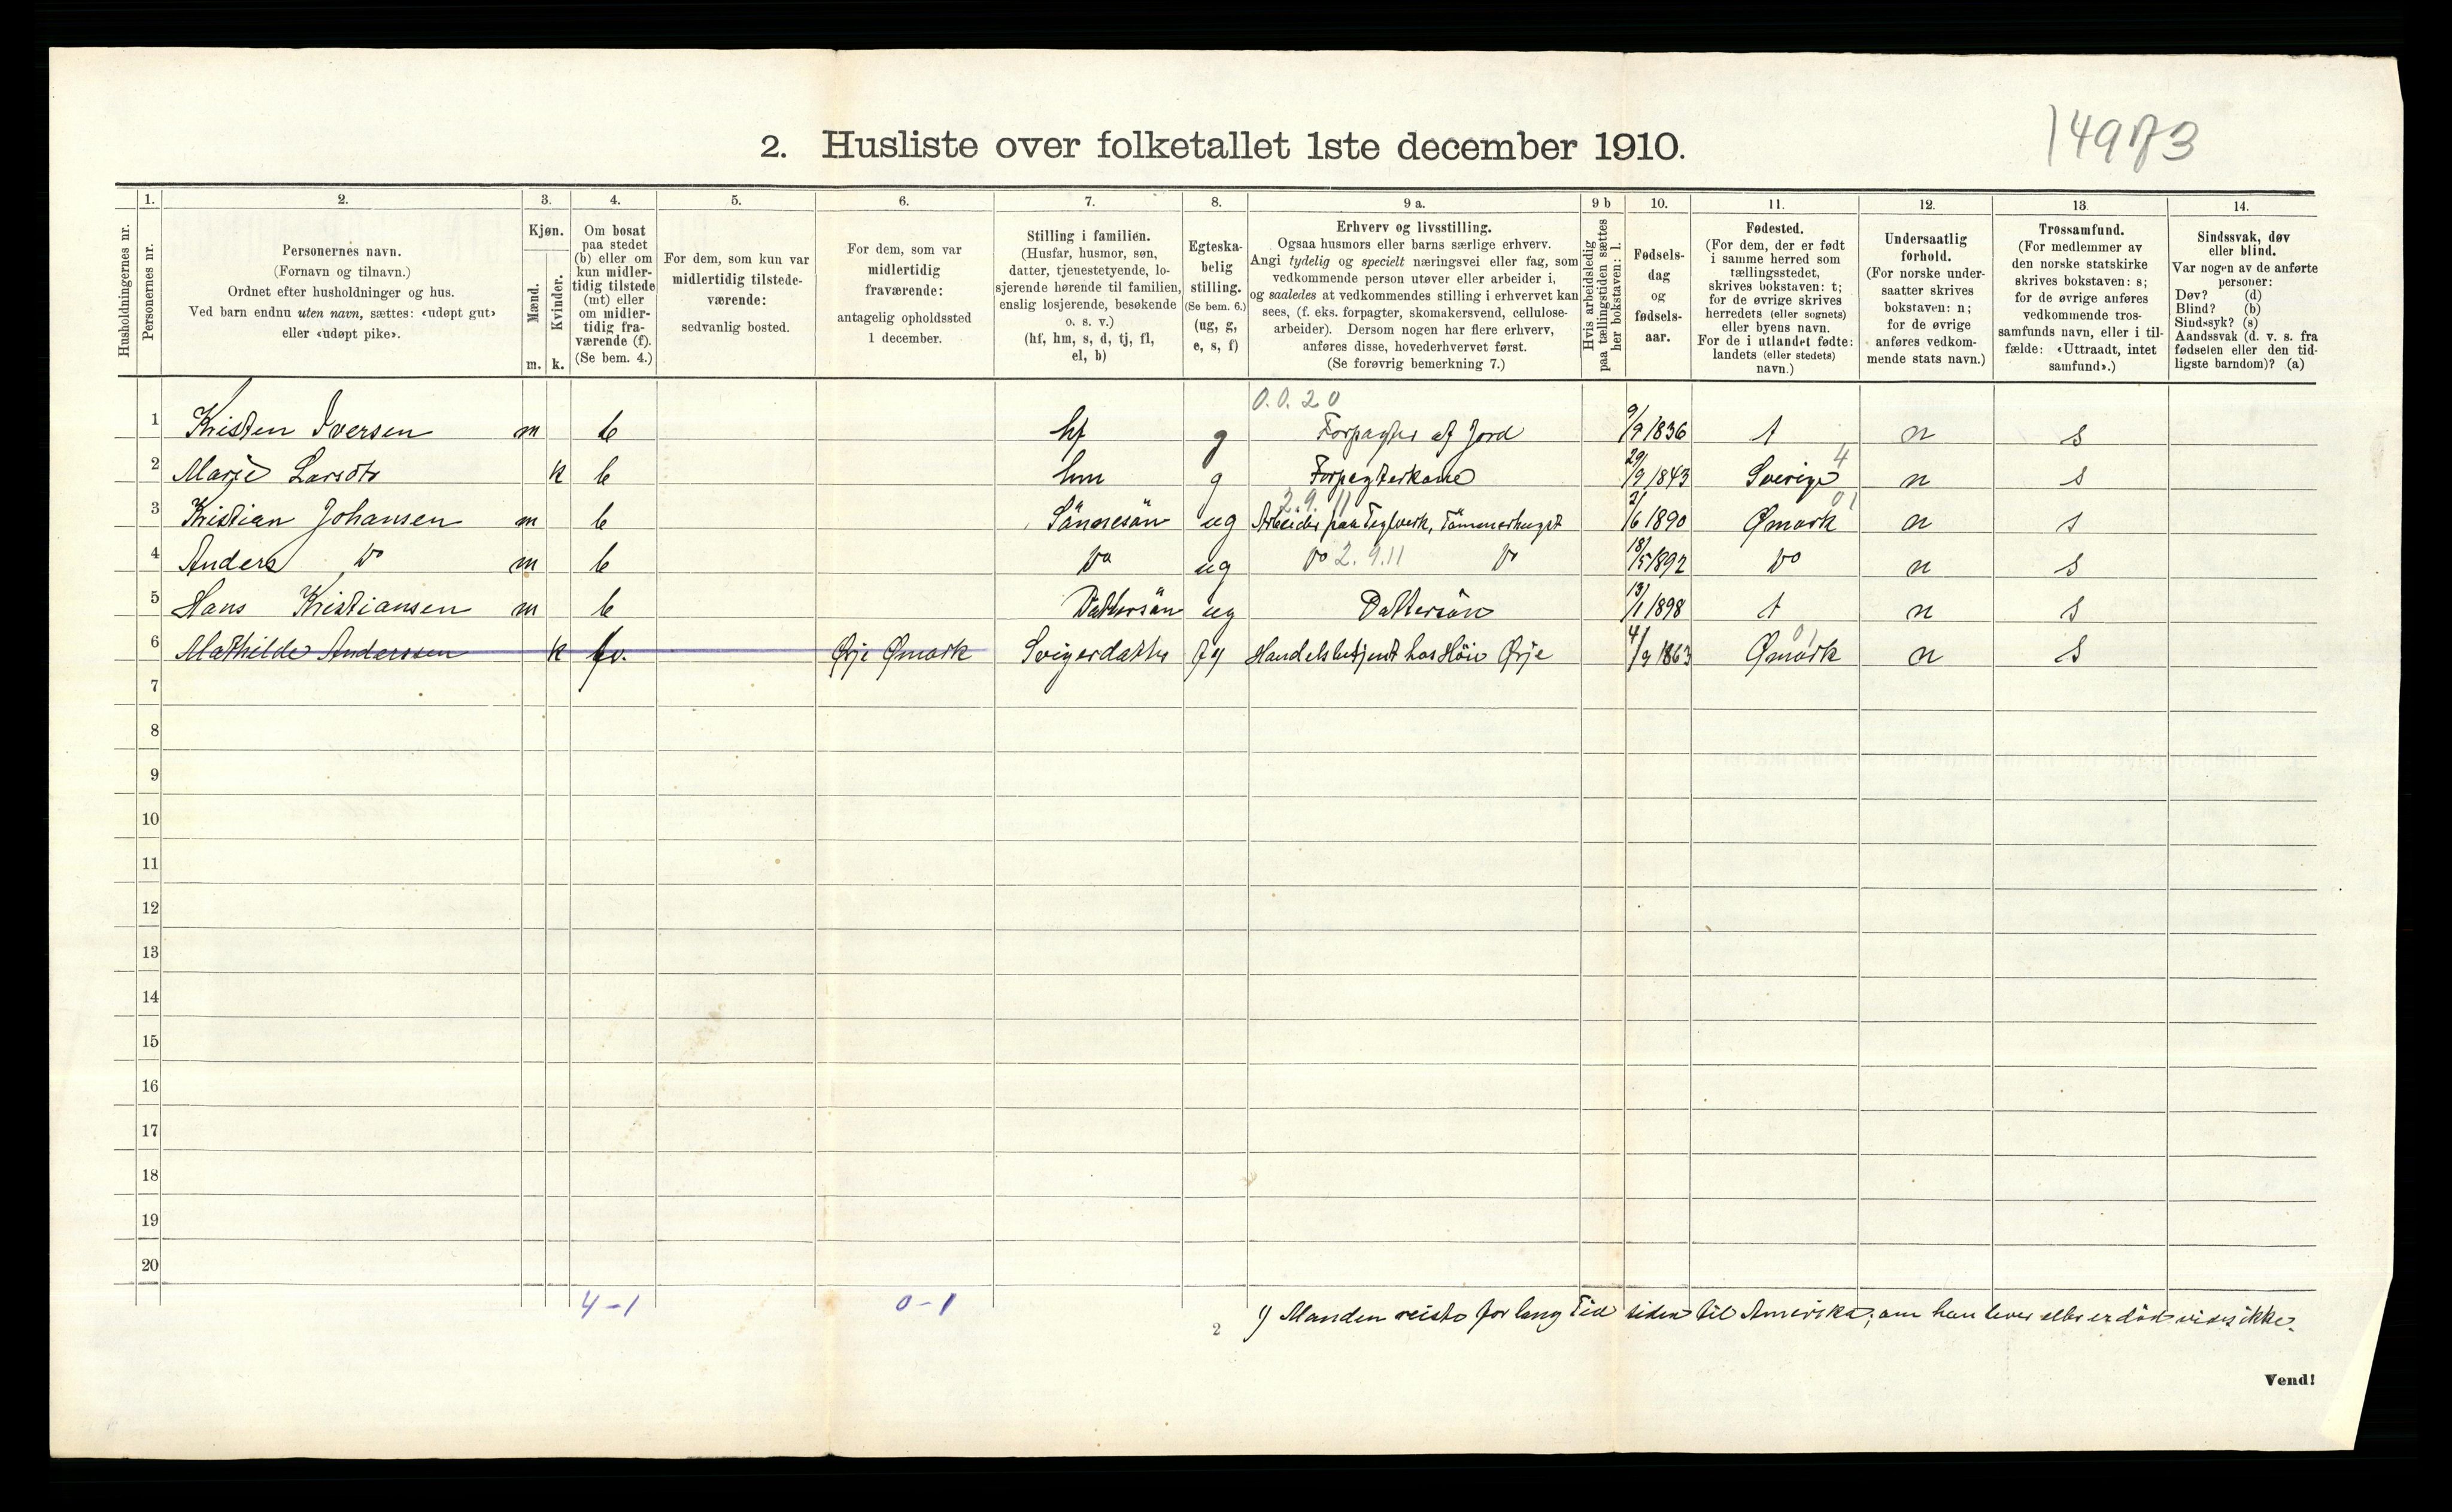 2. Husliste over folketallet 1ste december 1910.
Husholdningernes nr.
1.
Personernes nr.
2.
Personernes navn.
(Fornavn og tilnavn.)
Ordnet efter husholdninger og hus.
Ved barn endnu uten navn, sættes: «udøpt gut»
eller «udøpt pike».
3.
Kjøn.
Mænd.
Kvinder.
m. k.
4.
Om bosat
paa stedet
(b) eller om
kun midler-
tidig tilstede
(mt) eller
om midler-
tidig fra-
værende (f).
(Se bem. 4.)
5.
For dem, som kun var
midlertidig tilstede-
værende:
sedvanlig bosted.
6.
For dem, som var
midlertidig
fraværende:
antagelig opholdssted
1 december.
7.
Stilling i familien.
(Husfar, husmor, søn,
datter, tjenestetyende, lo-
sjerende hørende til familien,
enslig losjerende, besøkende
o. s. v.)
(hf, hm, s, d, tj, fl,
el, b)
8.
Egteska-
belig
stilling.
(Se bem. 6.)
(ug, g,
e, s, f)
9 a.
Erhverv og livsstilling.
Ogsaa husmors eller barns særlige erhverv.
Angi tydelig og specielt næringsvei eller fag, som
vedkommende person utøver eller arbeider i,
og saaledes at vedkommendes stilling i erhvervet kan
sees, (f. eks. forpagter, skomakersvend, cellulose-
arbeider). Dersom nogen har flere erhverv,
anføres disse, hovederhvervet først.
(Se forøvrig bemerkning 7.)
9 b
Hvis arbeidsledig
paa tællingstiden sættes
her bokstaven: l.
10.
Fødsels-
dag
og
fødsels-
aar.
11.
Fødested.
(For dem, der er født
i samme herred som
tællingsstedet,
skrives bokstaven: t;
for de øvrige skrives
herredets (eller sognets)
eller byens navn.
For de i utlandet fødte:
landets (eller stedets)
navn.)
12.
Undersaatlig
forhold.
(For norske under-
saatter skrives
bokstaven: n;
for de øvrige
anføres vedkom-
mende stats navn.)
13.
Trossamfund.
(For medlemmer av
den norske statskirke
skrives bokstaven: s;
for de øvrige anføres
vedkommende tros-
samfunds navn, eller i til-
fælde: «Uttraadt, intet
samfund».)
14.
Sindssvak, døv
eller blind.
Var nogen av de anførte
personer:
Døv? (d)
Blind? (b)
Sindssyk? (s)
Aandssvak (d. v. s. fra
fødselen eller den tid-
ligste barndom)? (a)
0.0.20
1 Kristen Iversen m b hf g Forpagter af Jord 9/9 1836 t n s
2 Marie Larsdtr k b hm g Forpagterkone 29/9 1843 Sverige 4 n s
2.9.11 01
3 Kristian Johansen m b Sönnesön ug Arbeider paa Teglverk, Tömmerhugst 21/6 1890 Ømark n s
4 Anders Do m b Do ug Do 2.9.11 Do 18/5 1892 Do n s
5 Hans Kristiansen m b Dattersön ug Dattersön 13/1 1898 t n s
6 Mathilde Anderssen k Ørje Ømark Svigerdatter Handelsbetjent hos Höie Ørje 4/9 1863 Ømark n s
7
8
9
10
11
12
13
14
15
16
17
18
19
20
4-1 0-1
1) Manden reiste for lang Tid siden til Amerika; om han lever eller er död vides ikke.
2
Vend!